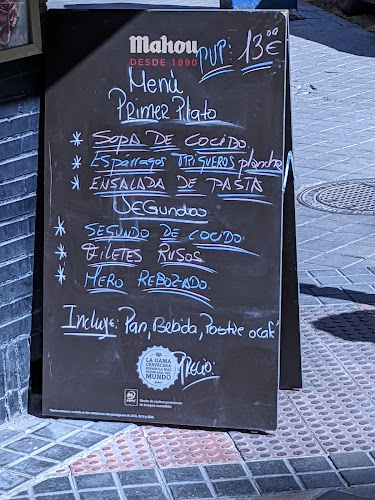 Mahou
DESDE 1890
PVP: 13,00 €
Menú
Primer Plato
* SOPA DE COCIDO
* Espárragos TRIGUEROS plancha
* ENSALADA DE PASTA
SEGundos
* SEGUNDO DE COCIDO.
* FILETES RUSOS
* MERO REBOZADO.
Incluye: Pan, Bebida, Postre o café
PRECIO:
LA GAMA
CERVECERA
ESPAÑOLA MÁS
PREMIADA DEL
MUNDO